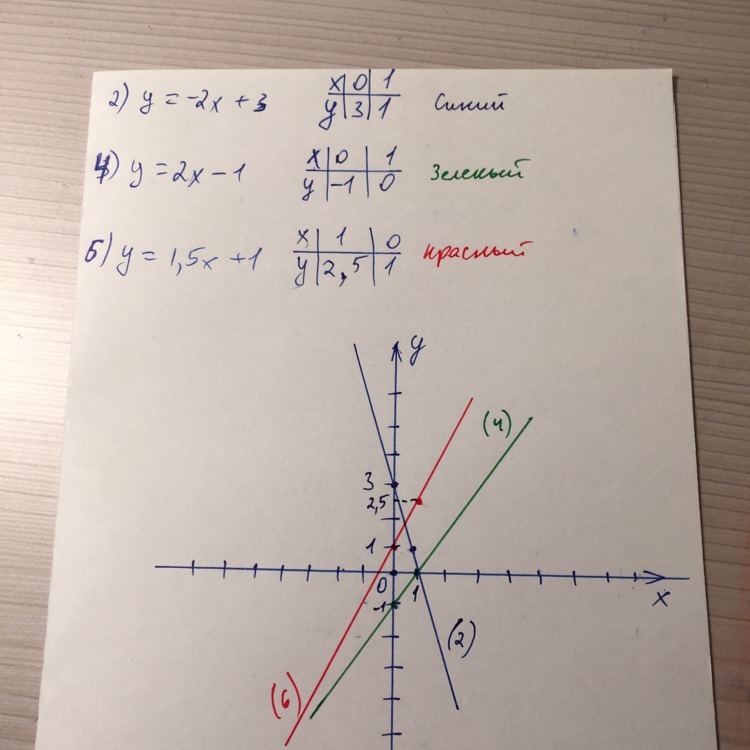 2) y = -2x + 3 x 0 1 Синий
y 3 1
4) y = 2x - 1 x 0 1 Зеленый
y -1 0
6) y = 1,5x + 1 x 1 0 красный
y 2,5 1
y
(4)
3
2,5
1
0 1 x
-1
(2)
(6)